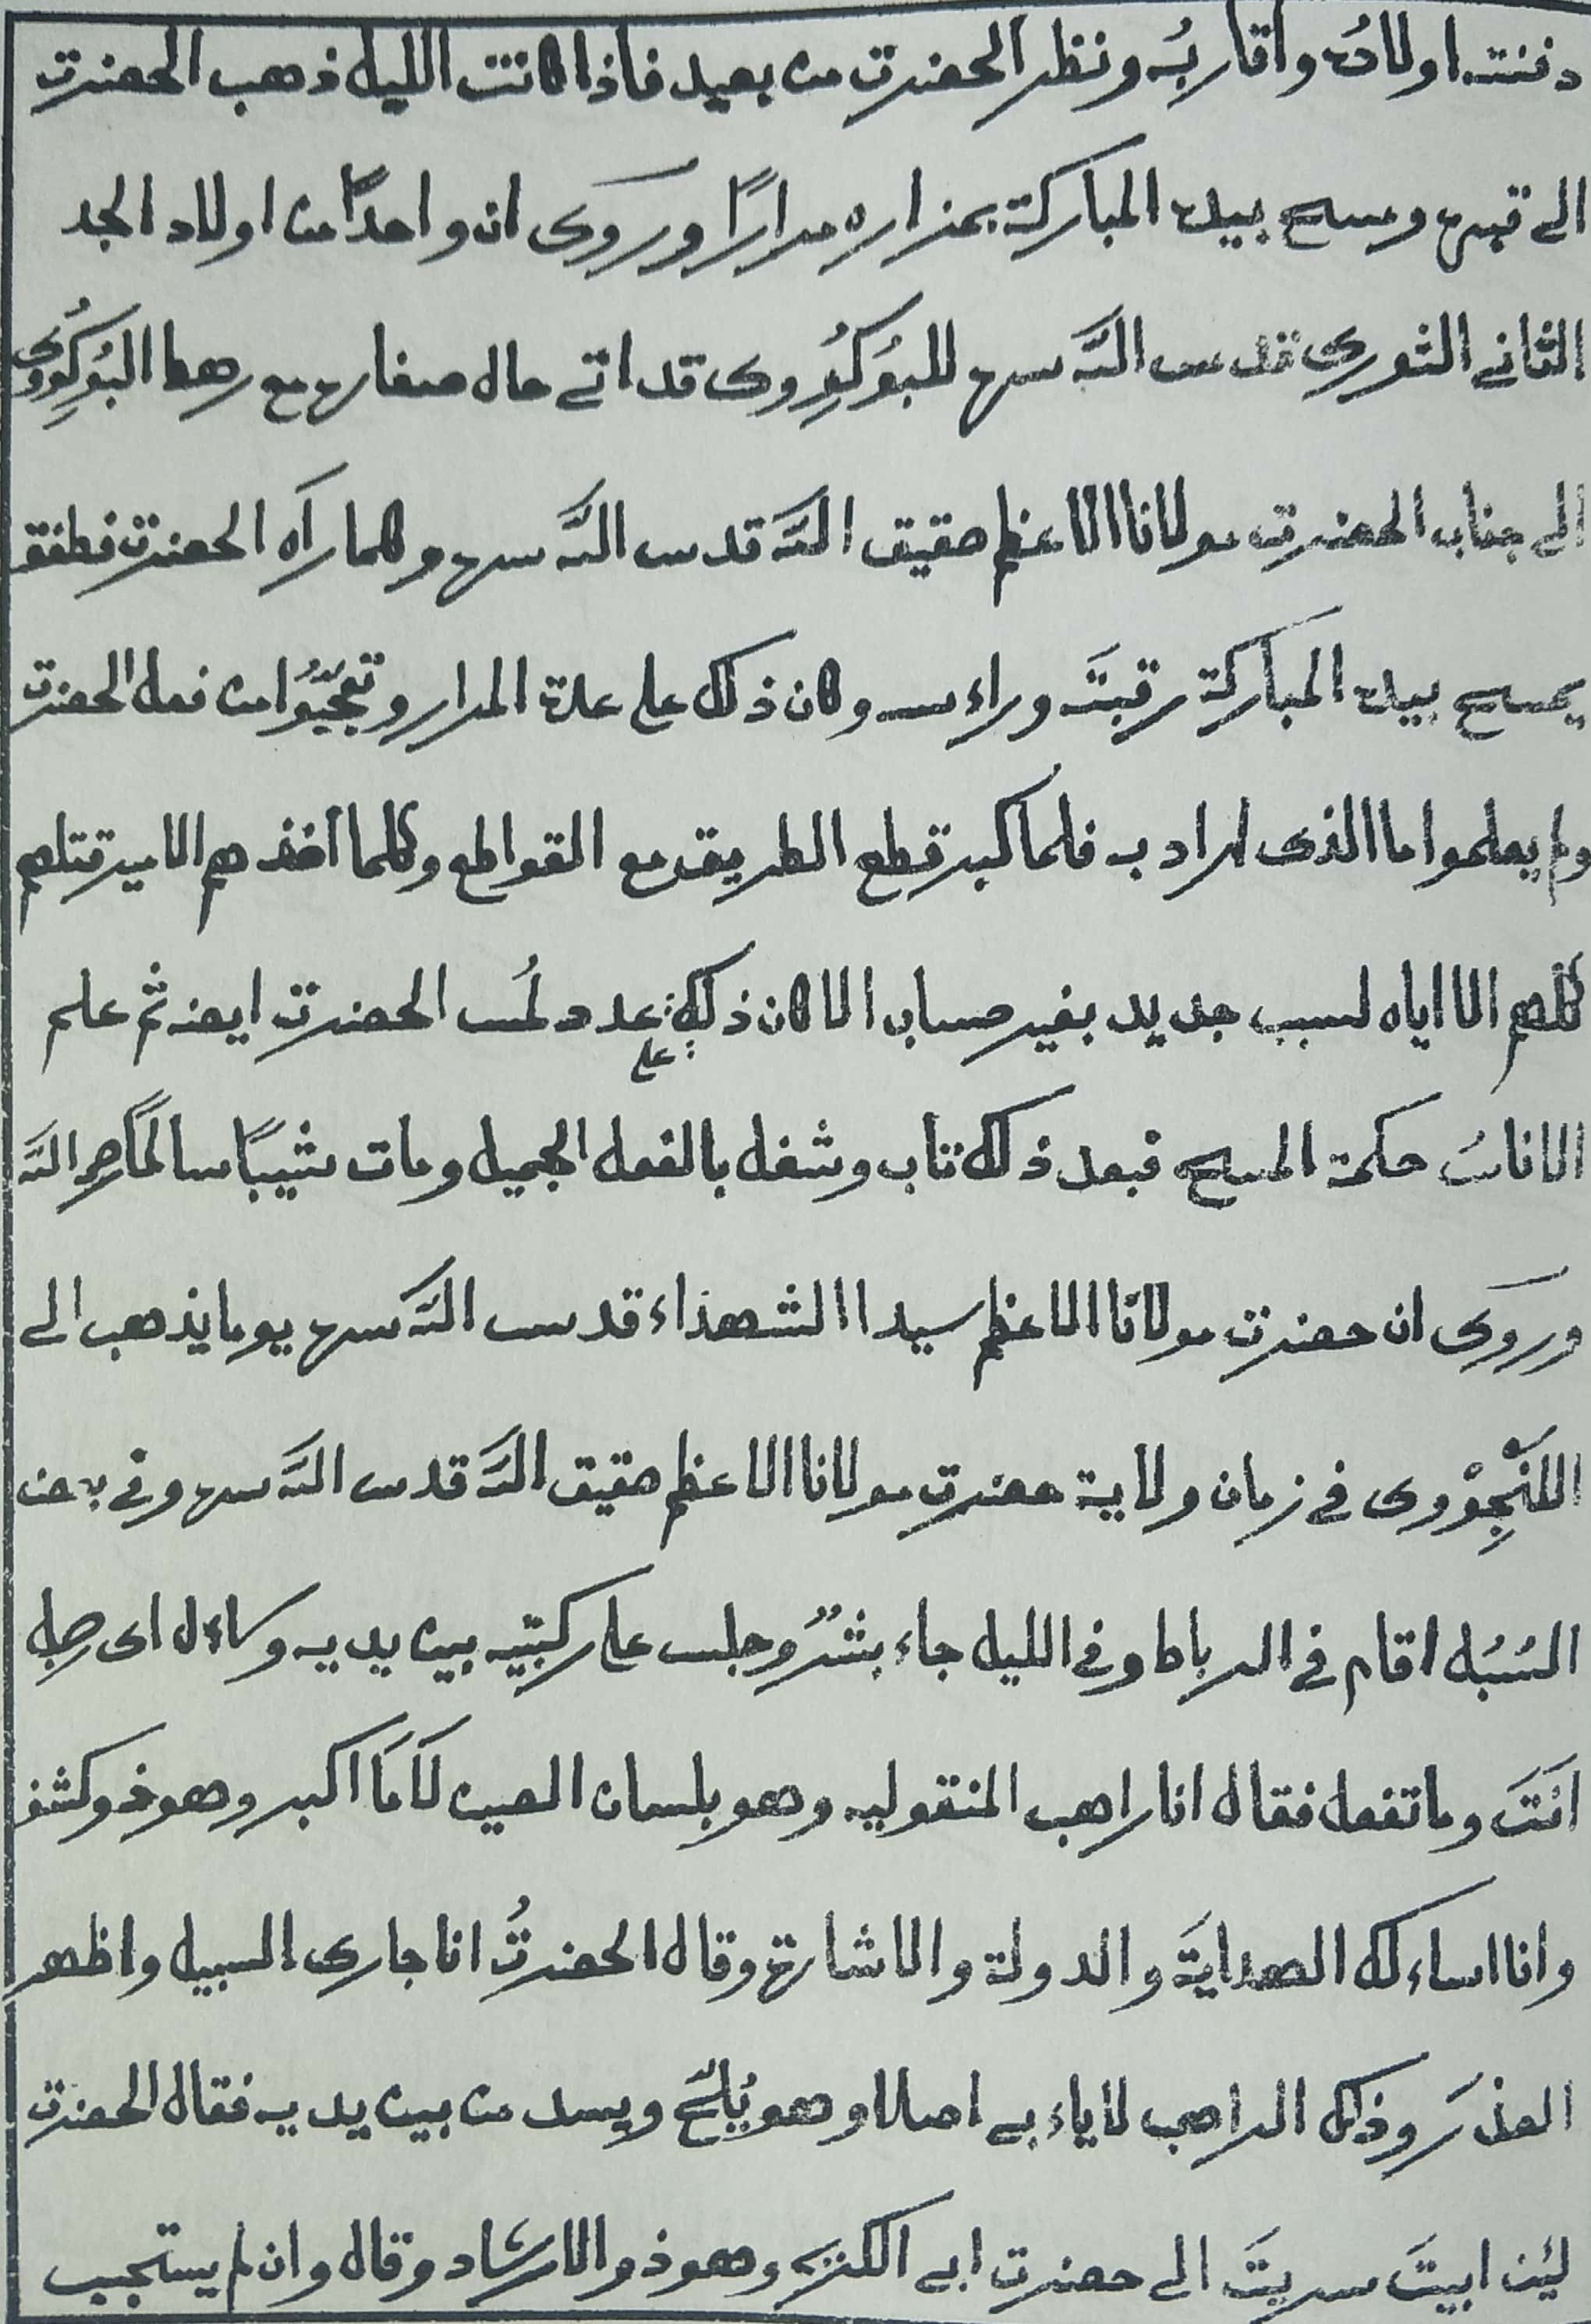 دفنته اولاده واقاربُه ونظر الحضرت من بعيد فاذا كانت الليل ذهب الحضرت
الى قبره ومسح بيده المباركة بمزاره مرارًا وروى ان واحدًا من اولاد الجد
الثانى الثورى قدس الله سره للبُوكُوِروى قد اتى حال صغاره مع رهط البُوكُوِروى
الى جناب الحضرت مولانا الاعظم حقيق الله قدس الله سره وكلما رآه الحضرت فطفق
يمسح بيده المباركة رقبتَه وراءسه وكان ذلك على عدة المرار وتعجّبُوا من فعل الحضرت
ولم يعلموا ما الذى اراد به فلما كبر قطع الطريق مع القواطع وكلما اخذهم الامير قتلهم
كلهم الا اياه لسبب جديد بغير حساب الا كان ذلك عدد لمس الحضرت ايضه ثم علم
على
الاناسُ حكمة المسح فبعد ذلك تاب وشغل بالفعل الجميل ومات شيبًا سالمًا الله
وروى ان حضرت مولانا الاعظم سيد االشهذاء قدس الله سره يوما يذهب الى
اللنجِوْوى فى زمان ولاية حضرت مولانا الاعظم حقيق الله قدس الله سره وفى بعض
السُبُل اقام فى الرباط وفى الليل جاء بشرٌ وجلس على ركبتيه بين يديه وساءل اى رجل
اَنتَ وما تفعل فقال انا راهب المنقوليه وهو بلسان الصين لَاَمَا اكبر وهو ذو كشف
وانا اساءلك الهدايَة والدولة والاشارة وقال الحضرتُ انا جارى السبيل واظهر
العذرَ وذلك الراهب لا ياءبى اصلا وهو يُلحّ ويسد من بين يديه فقال الحضرت
لئن ابيتَ سربتَ الى حضرت ابى الكنزيه وهو ذو الارشاد وقال وان لم يستجب